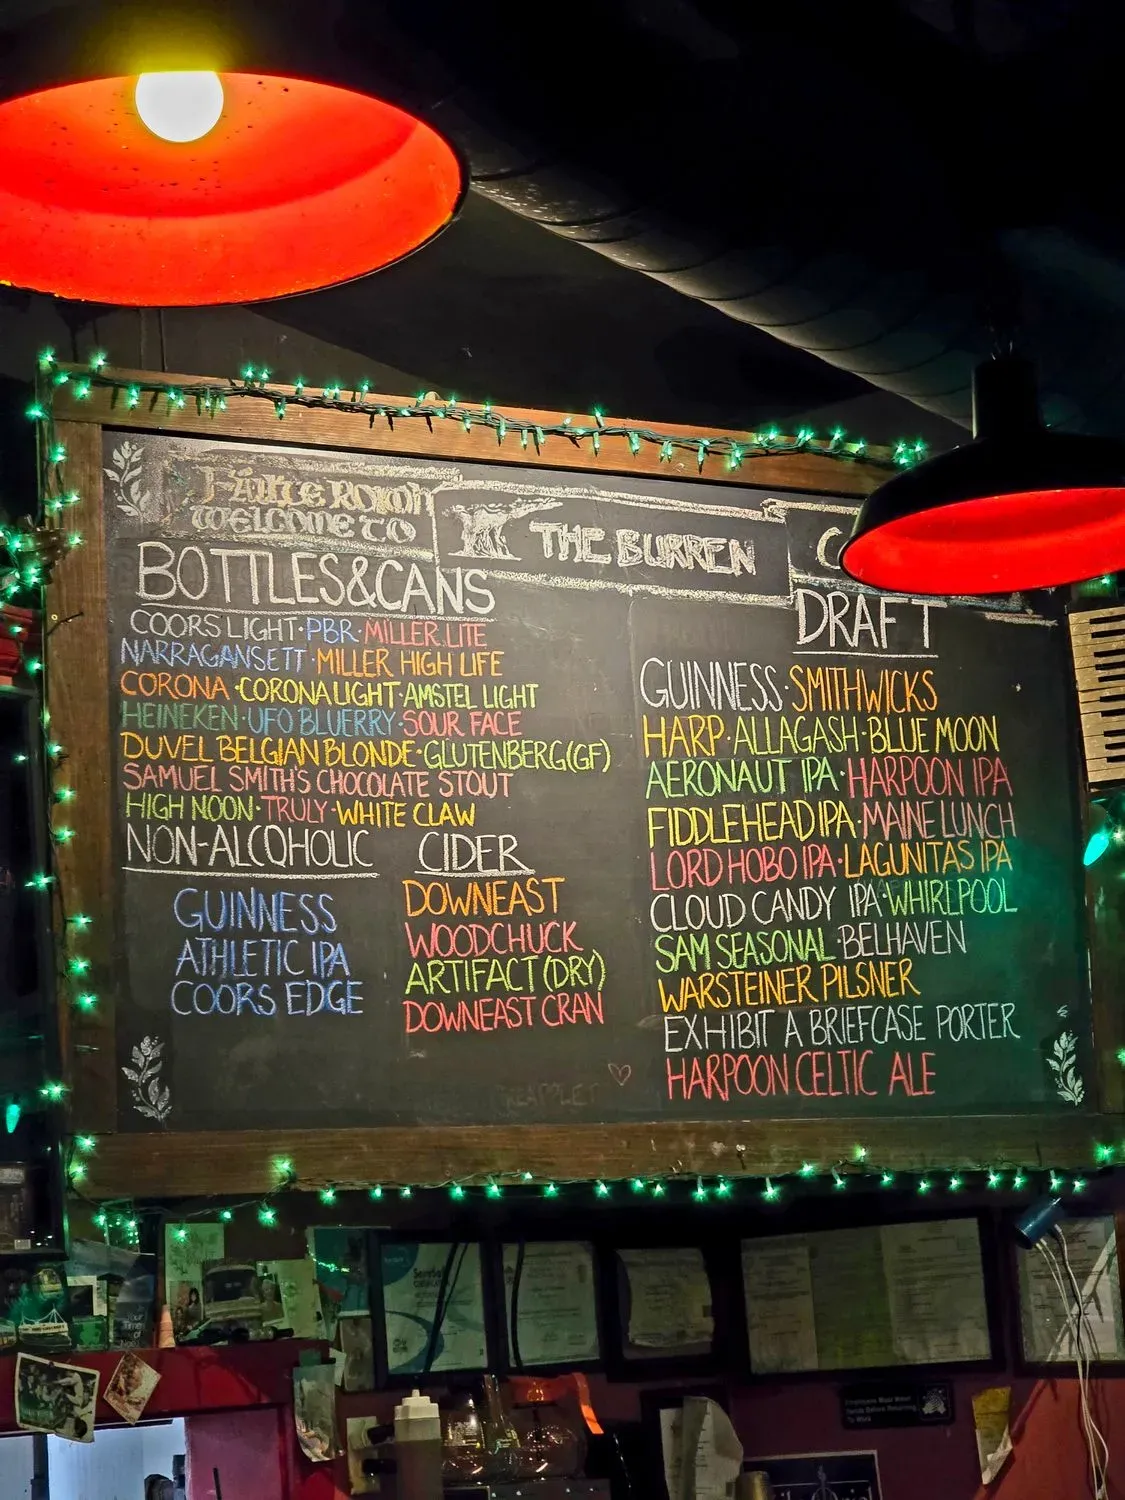 FÁILTE ROIMH
WELCOME TO
THE BURREN
C
BOTTLES&CANS
COORS LIGHT·PBR·MILLER LITE
NARRAGANSETT·MILLER HIGH LIFE
CORONA·CORONA LIGHT·AMSTEL LIGHT
HEINEKEN·UFO BLUERRY·SOUR FACE
DUVEL BELGIAN BLONDE·GLUTENBERG(GF)
SAMUEL SMITH'S CHOCOLATE STOUT
HIGH NOON·TRULY·WHITE CLAW
NON-ALCOHOLIC
GUINNESS
ATHLETIC IPA
COORS EDGE
CIDER
DOWNEAST
WOODCHUCK
ARTIFACT (DRY)
DOWNEAST CRAN
DRAFT
GUINNESS·SMITHWICKS
HARP·ALLAGASH·BLUE MOON
AERONAUT IPA·HARPOON IPA
FIDDLEHEAD IPA·MAINE LUNCH
LORD HOBO IPA·LAGUNITAS IPA
CLOUD CANDY IPA·WHIRLPOOL
SAM SEASONAL·BELHAVEN
WARSTEINER PILSNER
EXHIBIT A BRIEFCASE PORTER
HARPOON CELTIC ALE
Employees Must Wash
Hands Before Returning
To Work